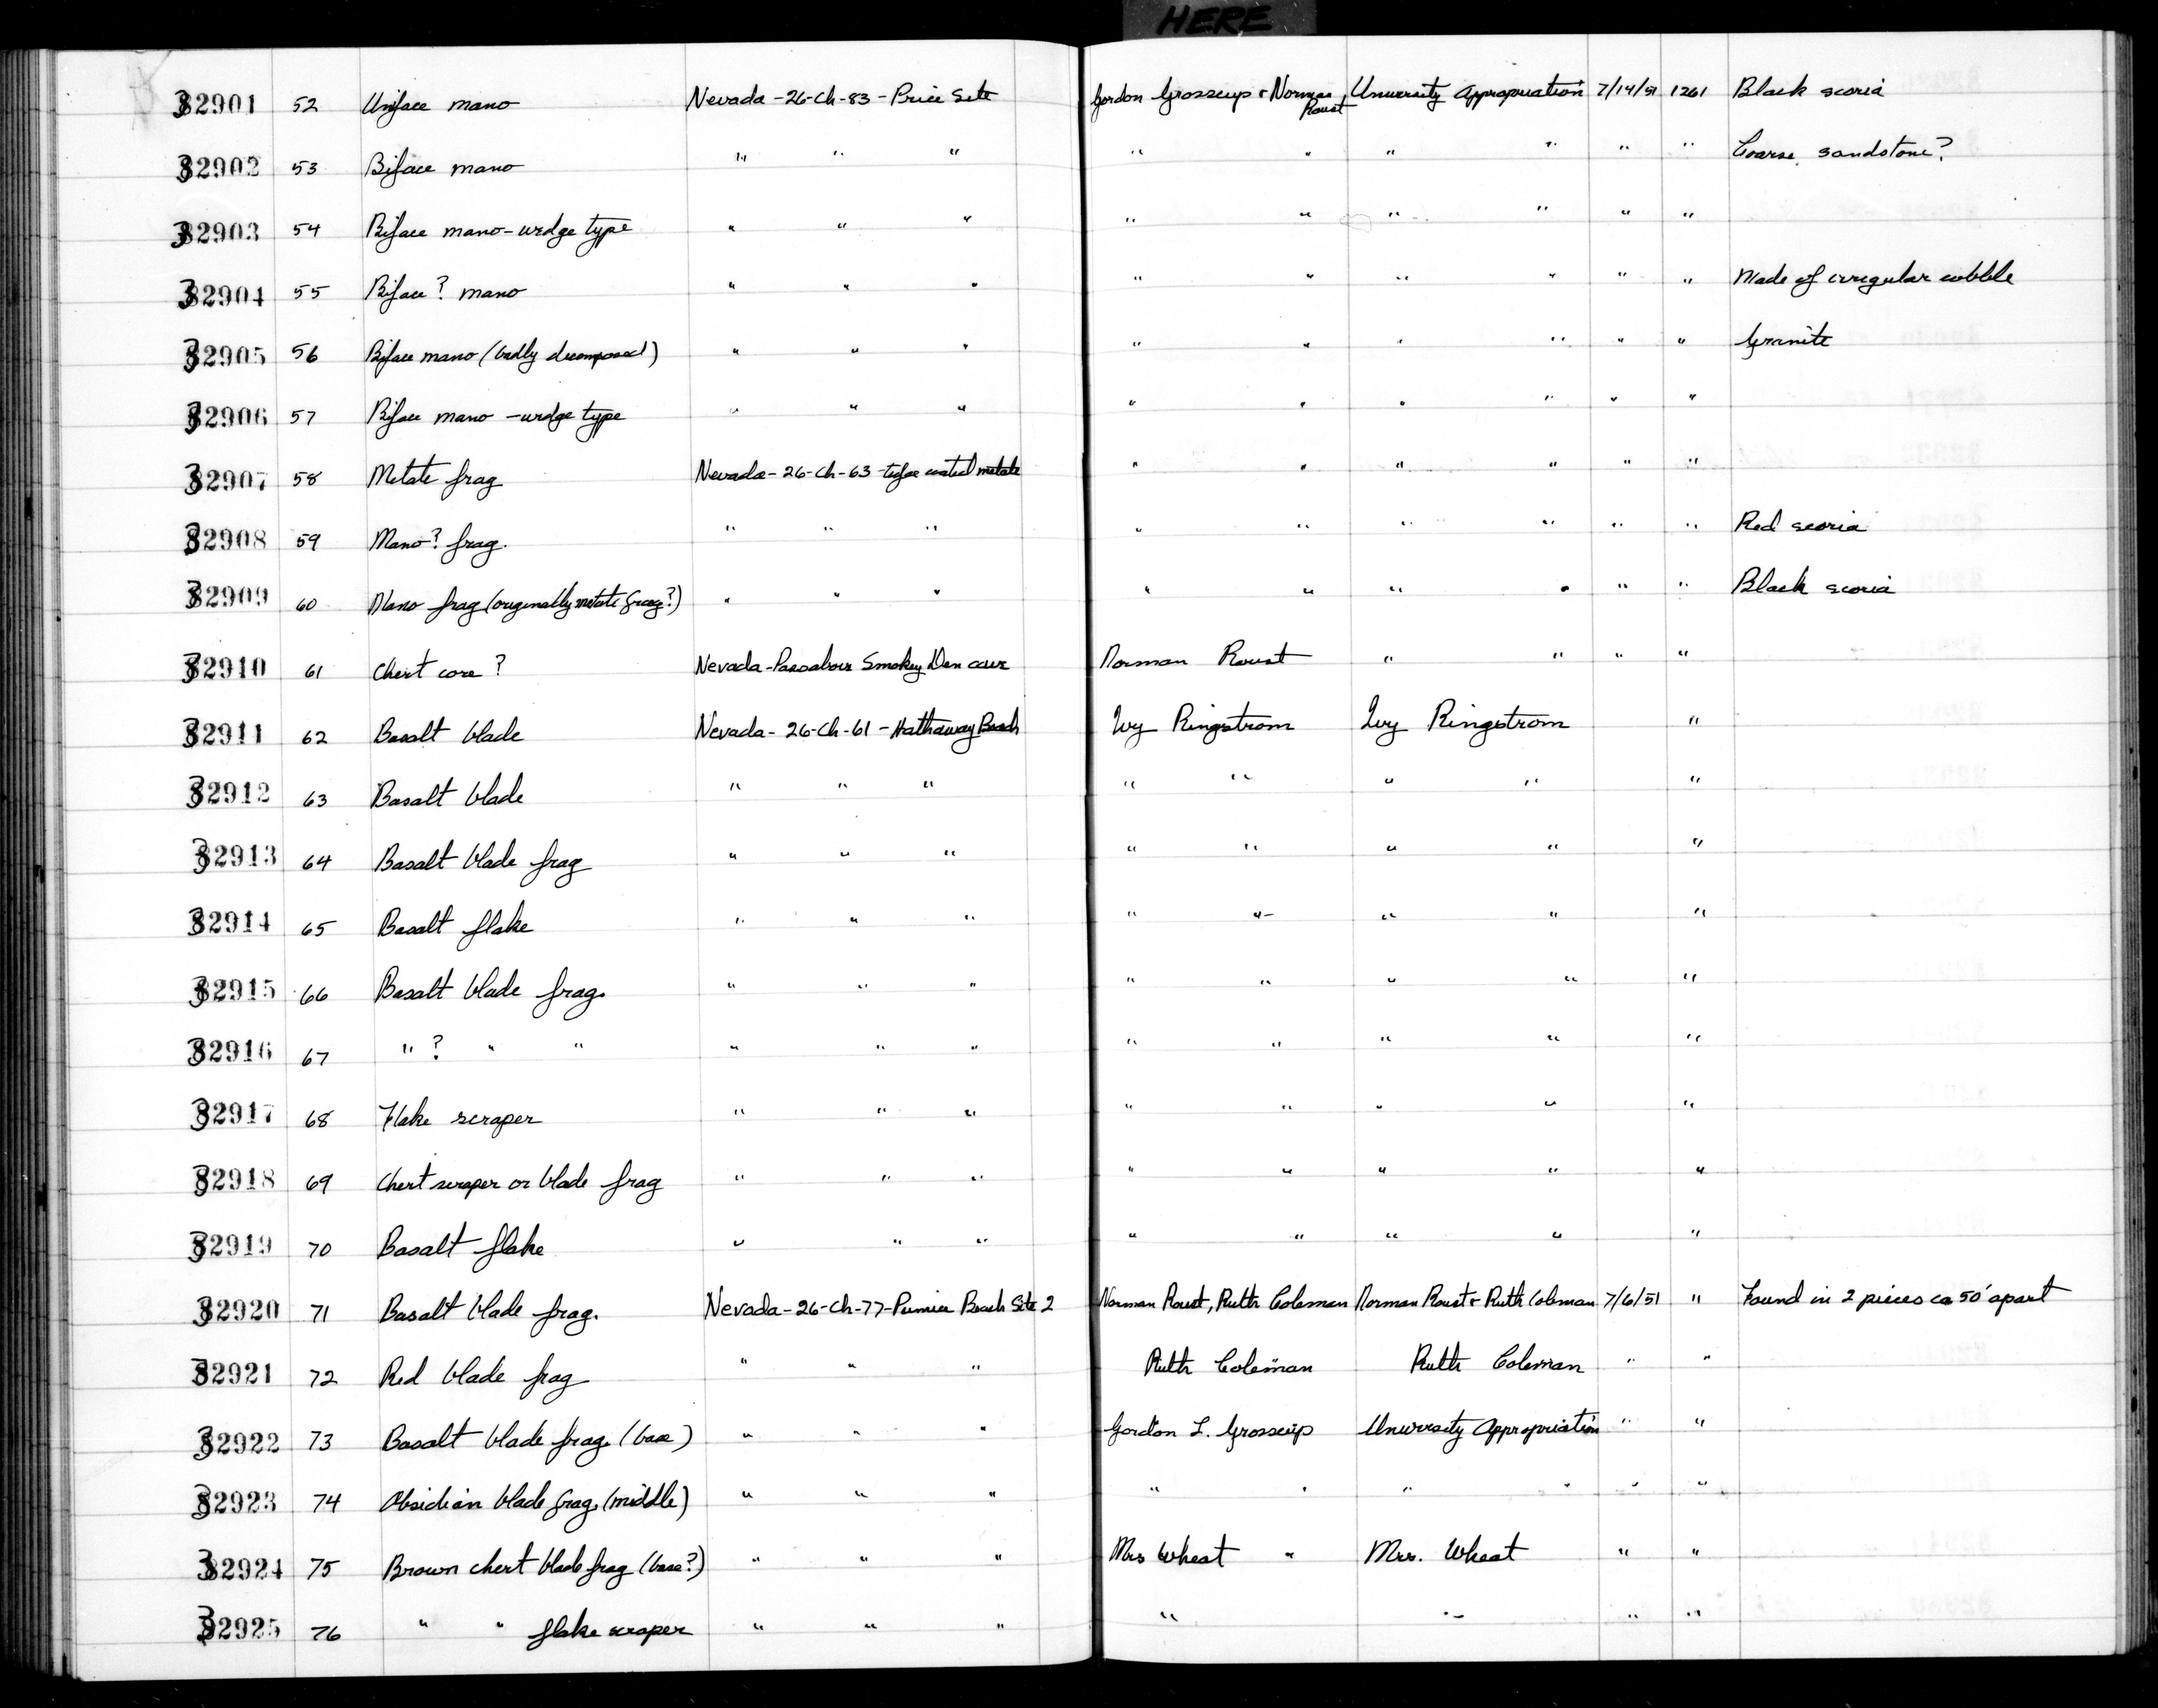 HERE
32901 52 Uniface mano Nevada - 26-Ch-83 - Price Site Gordon Grosscup & Norman Roust University Appropriation 7/14/51 1261 Black scoria
32902 53 Biface mano " " " " " " " " " Coarse sandstone?
32903 54 Biface mano - wedge type " " " " " " " " "
32904 55 Biface? mano " " " " " " " " " Made of irregular cobble
32905 56 Biface mano (badly decomposed) " " " " " " " " " Granite
32906 57 Biface mano - wedge type " " " " " " " " "
32907 58 Metate frag Nevada - 26-Ch-63 - tufa coated metate " " " " " "
32908 59 Mano? frag. " " " " " " " " " Red scoria
32909 60 Mano frag (originally metate frag?) " " " " " " " " " Black scoria
32910 61 Chert core? Nevada - Smokey Den cave Norman Roust " " " "
32911 62 Basalt blade Nevada - 26-Ch-61 - Hathaway Beach Ivy Ringstrom Ivy Ringstrom "
32912 63 Basalt blade " " " " " " " "
32913 64 Basalt blade frag " " " " " " " "
32914 65 Basalt flake " " " " " " " "
32915 66 Basalt blade frag. " " " " " " " "
32916 67 " ? " " " " " " " " " "
32917 68 Flake scraper " " " " " " " "
32918 69 Chert scraper or blade frag " " " " " " " "
32919 70 Basalt flake " " " " " " " "
32920 71 Basalt blade frag. Nevada - 26-Ch-77 - Pumice Beach Site 2 Norman Roust, Ruth Coleman Norman Roust & Ruth Coleman 7/6/51 " Found in 2 pieces ca 50' apart
32921 72 Red blade frag " " " Ruth Coleman Ruth Coleman " "
32922 73 Basalt blade frag. (base) " " " Gordon L. Grosscup University Appropriation " "
32923 74 Obsidian blade frag. (middle) " " " " " " " " "
32924 75 Brown chert blade frag (base?) " " " Mrs Wheat " Mrs. Wheat " "
32925 76 " " flake scraper " " " " " " "